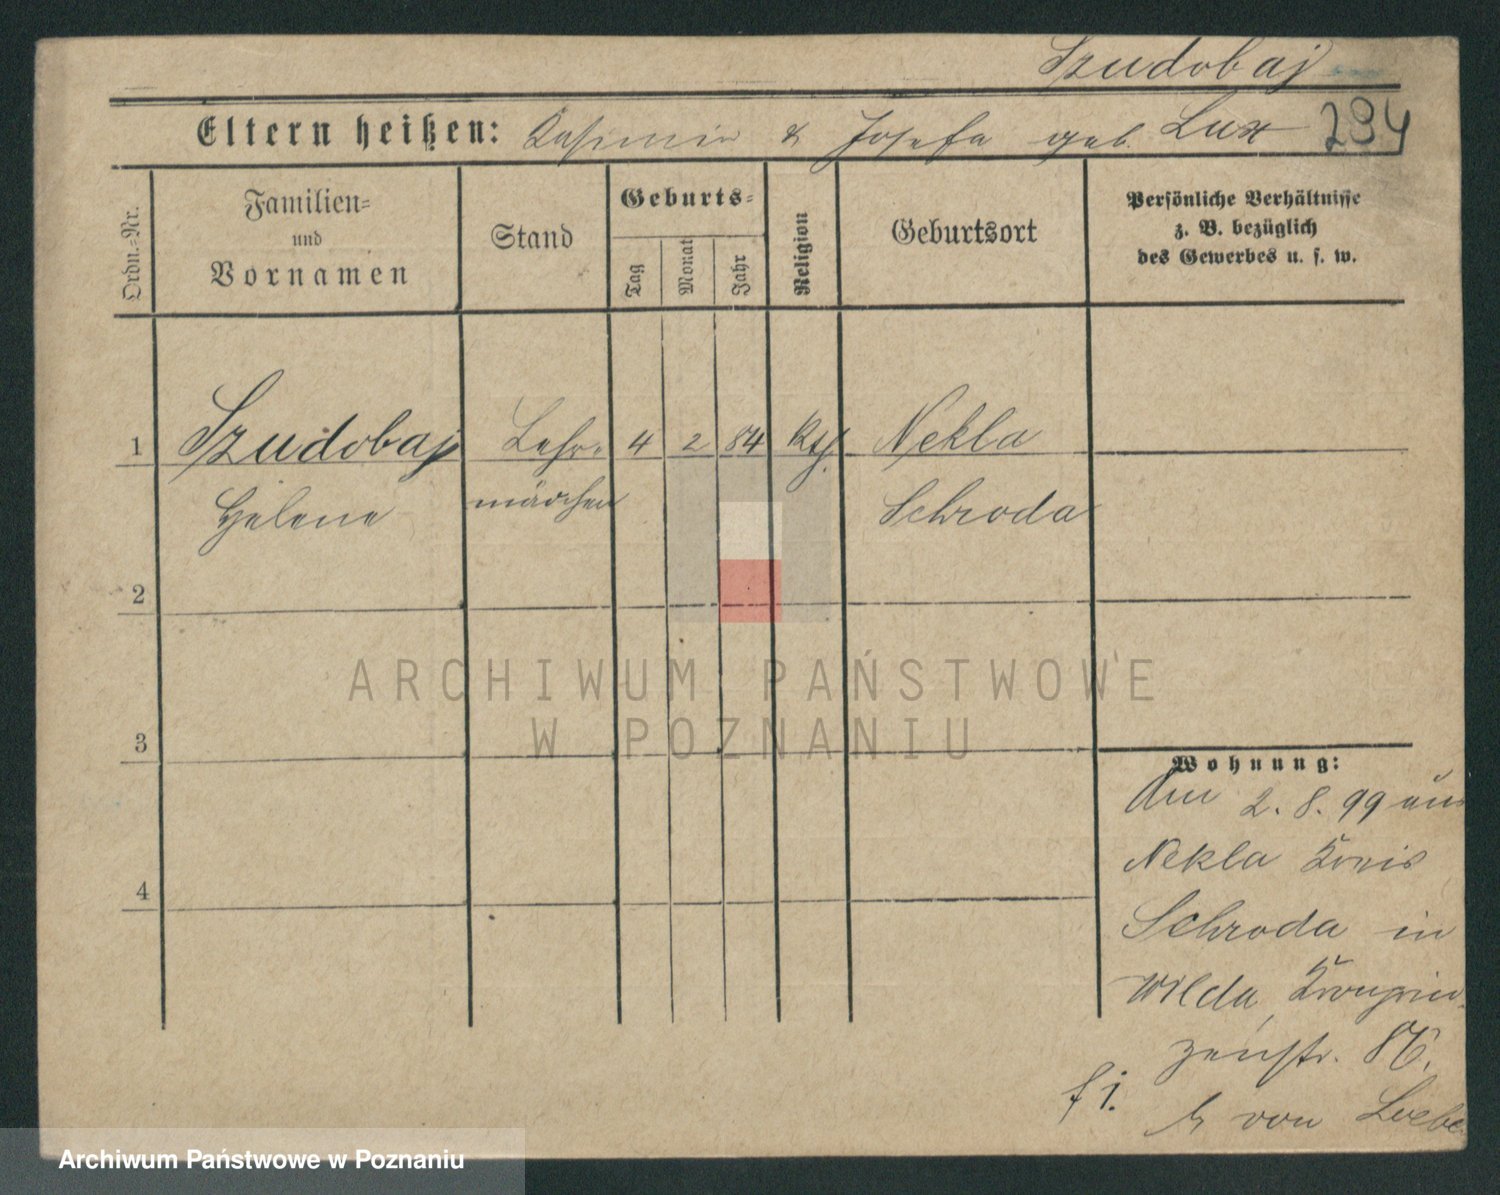 Szudobaj
Eltern heißen: Kasimir & Josefa geb. Lux 294
Ordn.=Nr.
Familien=
und
Vornamen
Stand
Geburts=
Tag
Monat
Jahr
Religion
Geburtsort
Persönliche Verhältnisse
z. B. bezüglich
des Gewerbes u. s. w.
1 Szudobaj Lehr= 4 2 84 kth. Nekla
Helene mädchen Schroda
2
3
4
ARCHIWUM PAŃSTWOWE
W POZNANIU
Wohnung:
Am 2. 8. 99 aus
Nekla Kreis
Schroda in
Wilda, Kronprin-
zenstr. 86,
b von Loebe
f i.
Archiwum Państwowe w Poznaniu